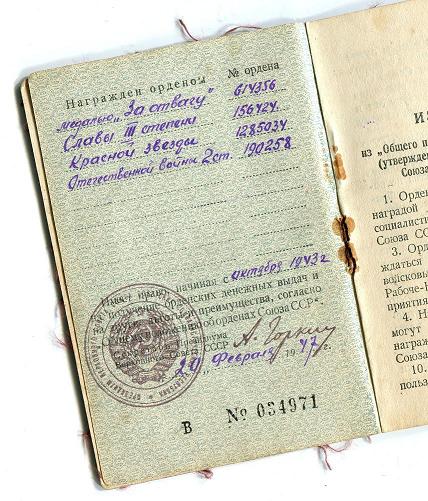 Награжден орденом № ордена
медалью „За отвагу" 614356
Славы III степени 156424
Красной звезды 1285034
Отечественной войны 2 ст. 190258
Имеет право, начиная с октября 1943 г.
на получение орденских денежных выдач и
другие льготы и преимущества, согласно
Общего положения об орденах Союза ССР".
Секретарь Президиума
Верховного Совета СССР А. Горкин
„20" февраля 1947 г.
В № 034971
ИЗ
из „Общего п
(утвержден
Союза
1. Орден
наградой
социалисти
Союза СС
3. Орд
ждаться
войсковы
Рабоче-К
приятия
4. Н
могут
награж
Союза
10.
пользо